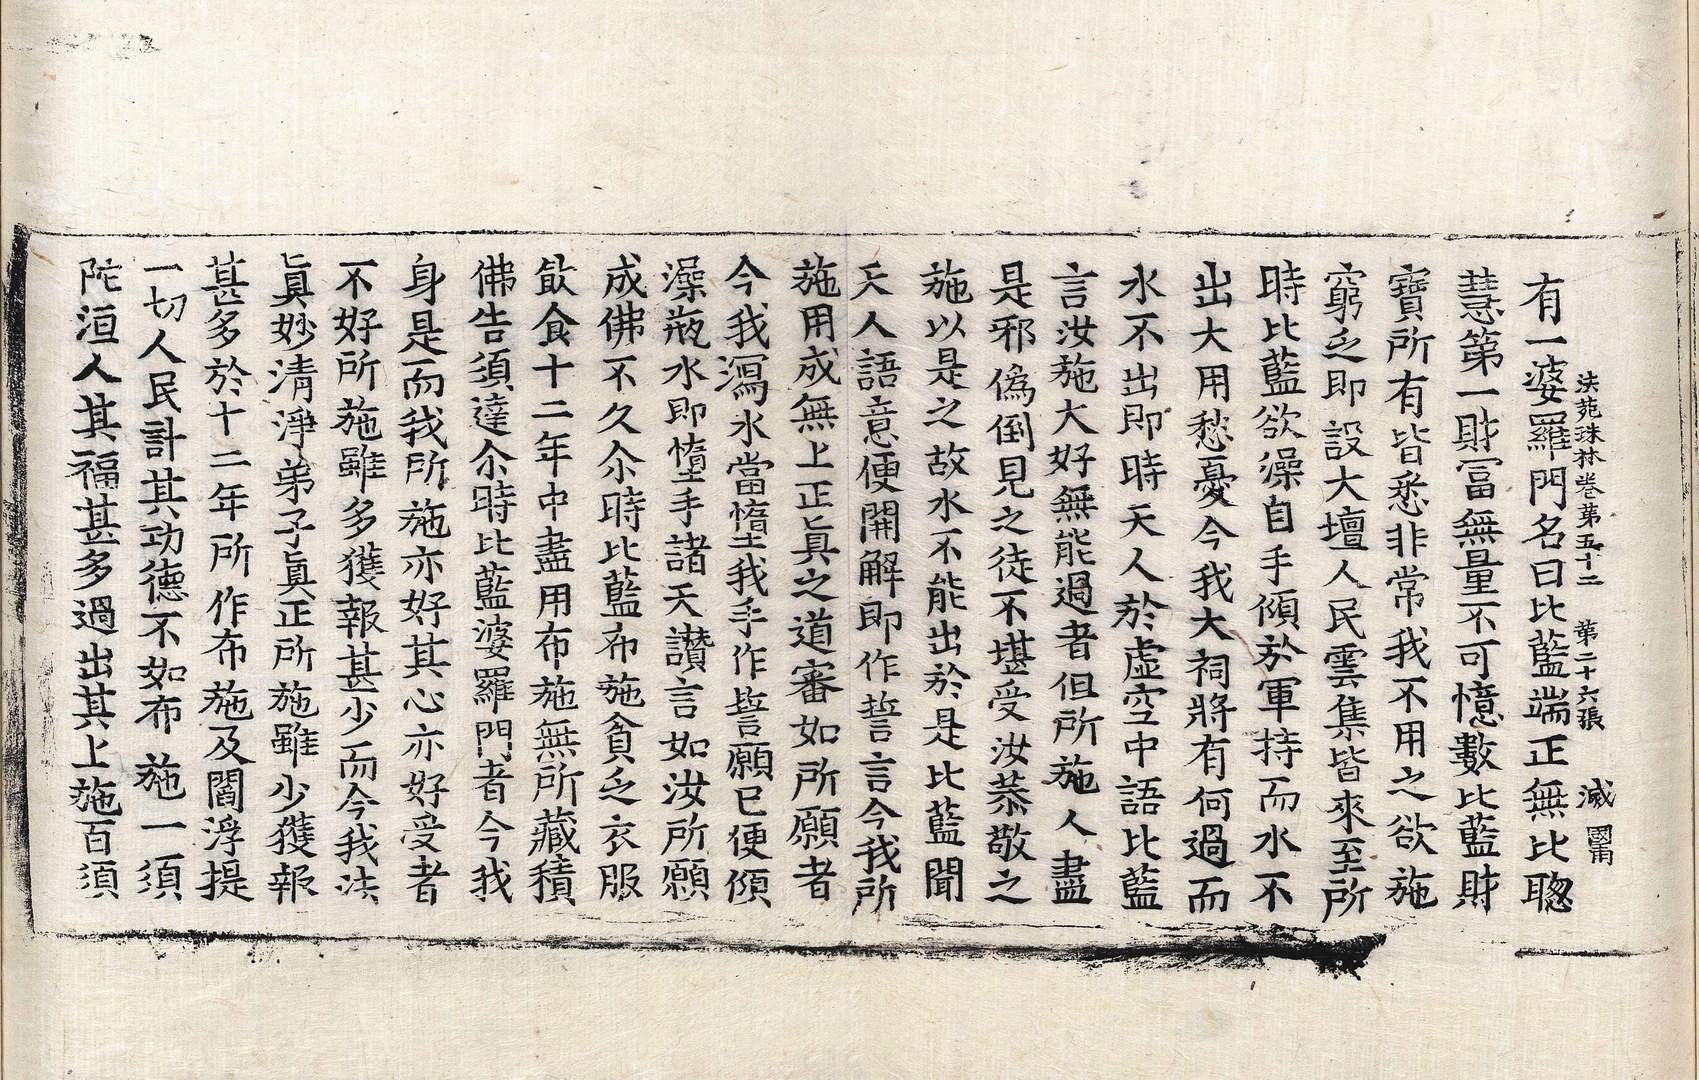 法苑珠林卷第五十二 第二十六張 滅
有一婆羅門名曰比藍端正無比聰
慧第一財冨無量不可憶數比藍財
寶所有皆悉非常我不用之欲施
窮乏即設大壇人民雲集皆來至所
時比藍欲澡自手傾於軍持而水不
出大用愁憂今我大祠將有何過而
水不出即時天人於虛空中語比藍
言汝施大好無能過者但所施人盡
是邪偽倒見之徒不堪受汝恭敬之
施以是之故水不能出於是比藍聞
天人語意便開解即作誓言今我所
施用成無上正眞之道審如所願者
今我瀉水當墮我手作誓願已便傾
澡瓶水即墮手諸天讃言如汝所願
成佛不久尒時比藍布施貧乏衣服
飮食十二年中盡用布施無所藏積
佛告須達尒時比藍婆羅門者今我
身是而我所施亦好其心亦好受者
不好所施雖多獲報甚少而今我法
眞妙清淨弟子眞正所施雖少獲報
甚多於十二年所作布施及閻浮提
一切人民計其功德不如布施一須
陀洹人其福甚多過出其上施百須